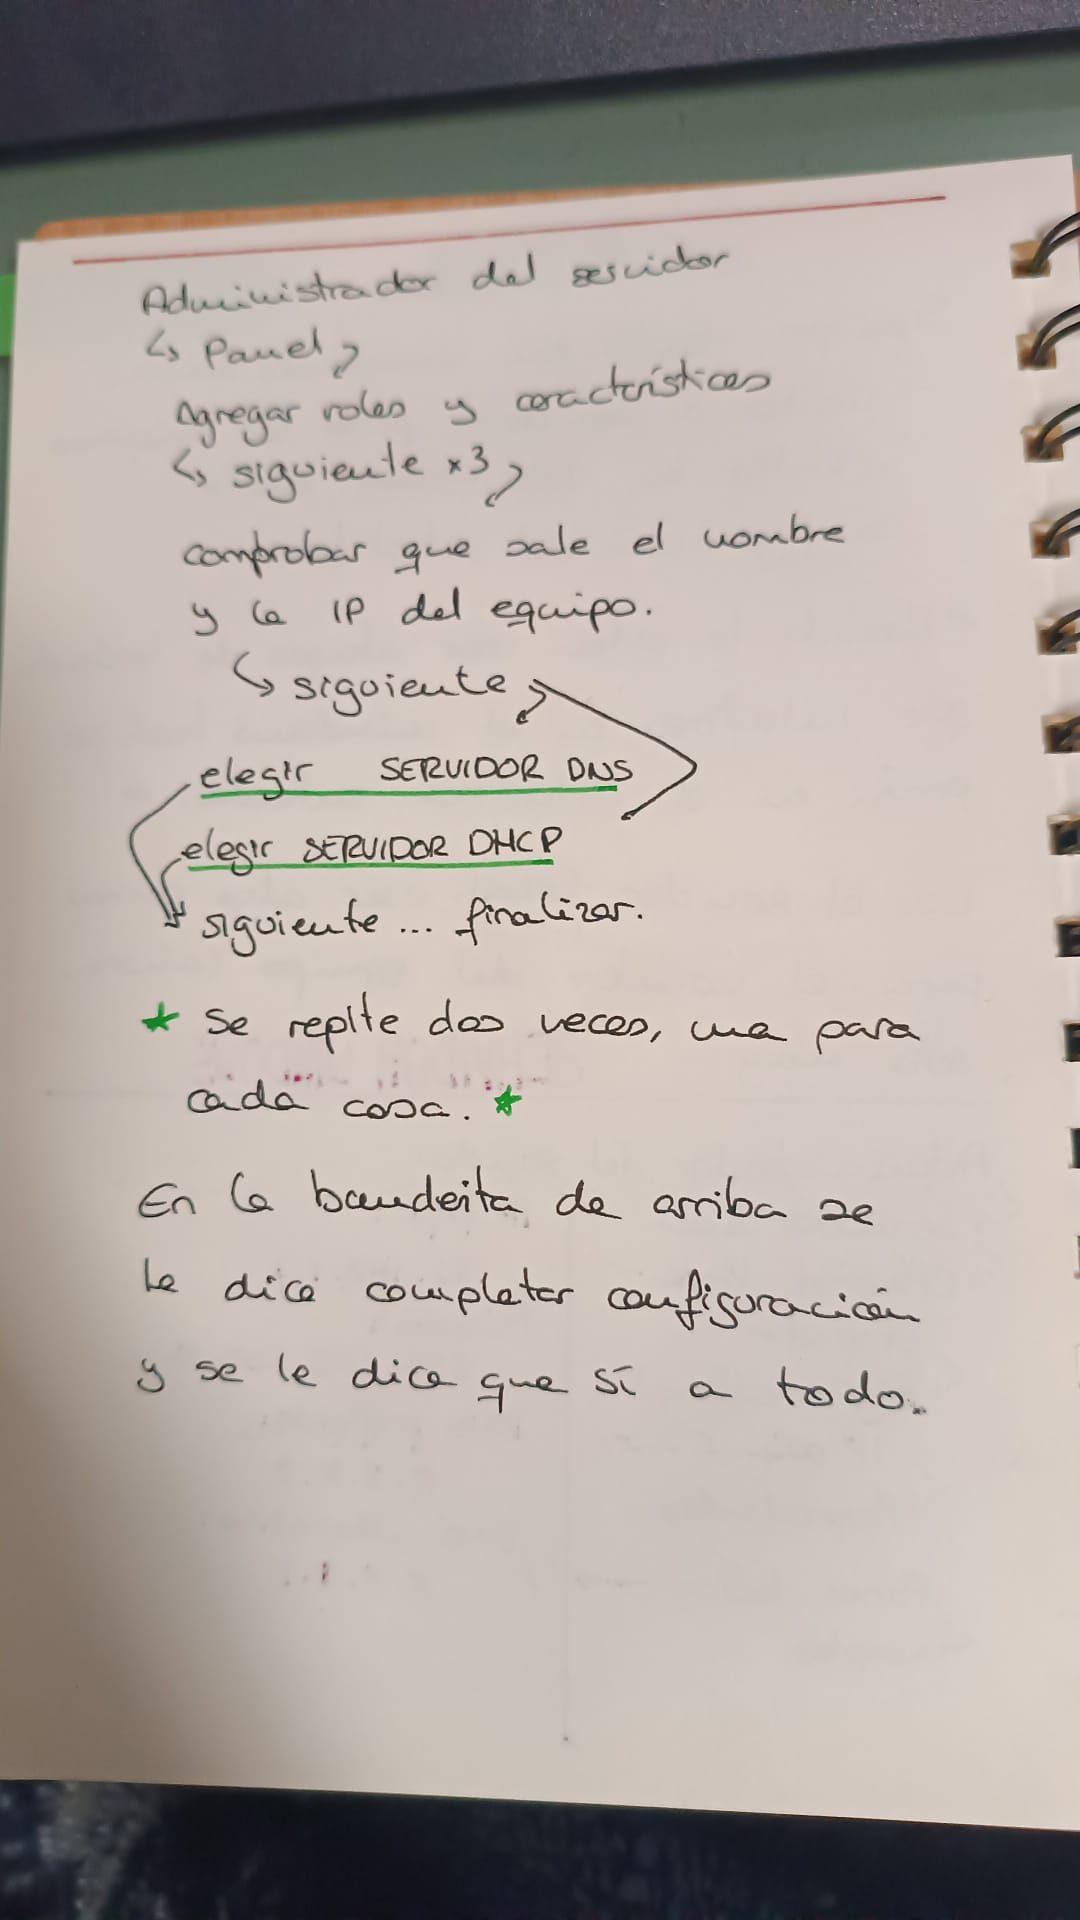 Administrador del servidor
↳ Panel
Agregar roles y características
↳ siguiente x3
comprobar que sale el nombre
y la IP del equipo.
↳ siguiente
elegir SERVIDOR DNS
elegir SERVIDOR DHCP
siguiente... finalizar.
★ Se repite dos veces, una para
cada cosa. ★
En la bandeita de arriba se
le dice completar configuración
y se le dice que sí a todo.